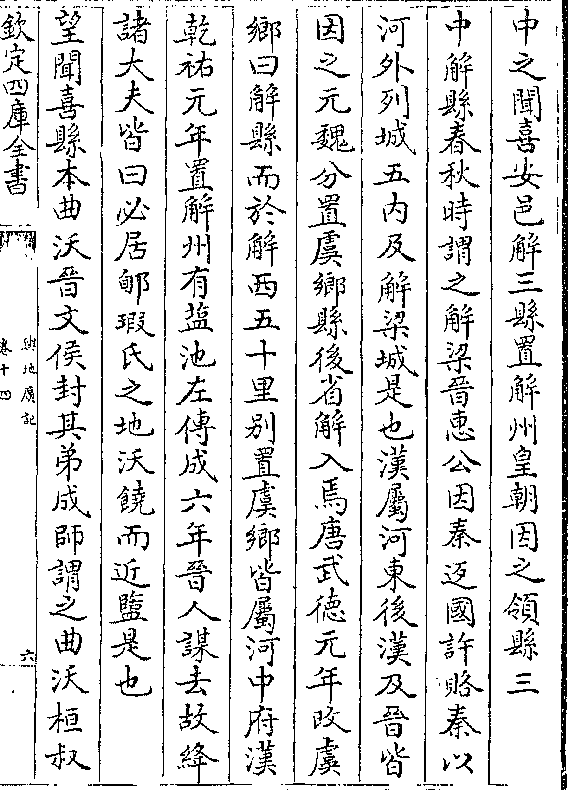 中之聞喜安邑解三縣置解州皇朝因之領縣三
中解縣春秋時謂之解梁晉惠公因秦返國許賂秦以
河外列城五内及解梁城是也漢屬河東後漢及晉皆
因之元魏分置虞鄉縣後省解入焉唐武德元年改虞
鄉曰解縣而於解西五十里别置虞鄉皆屬河中府漢
乾祐元年置解州有盐池左傳成六年晉人謀去故絳
諸大夫皆曰必居郇瑕氏之地沃饒而近盬是也
望聞喜縣本曲沃晉文侯封其弟成師謂之曲沃桓叔
欽定四庫全書
輿地廣記
卷十四
六